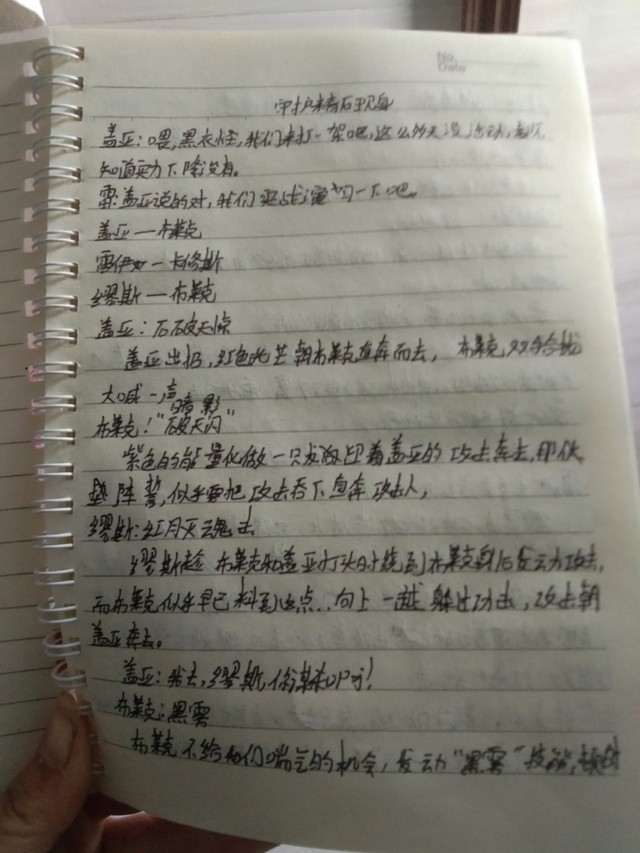 No.
Date
守护者石现身
盖亚：喂，黑衣怪，我们来打一架吧，这么多天没运动，
知道实力下降没有。
雷：盖亚说的对，我们一下吧。
盖亚—布莱克
雷伊—卡修斯
缪斯—布莱克
盖亚：石破天惊
盖亚出招，红色光芒朝布莱克直奔而去，布莱克双手合
大喊一声
布莱克！"暗影破天闪"
紫色的能量化做一只着盖亚的攻击奔去，
阵，似乎要把攻击吞下直奔攻击人，
缪斯：红月灭魂击
缪斯趁布莱克和盖亚打斗时绕到布莱克身后发动攻击，
而布莱克似乎早已料到这点..向上一跳躲过攻击，攻击朝
盖亚奔去。
盖亚：我去，缪斯，你！
布莱克：黑雾
布莱克不给他们喘气的机会，发动"黑雾"技能，